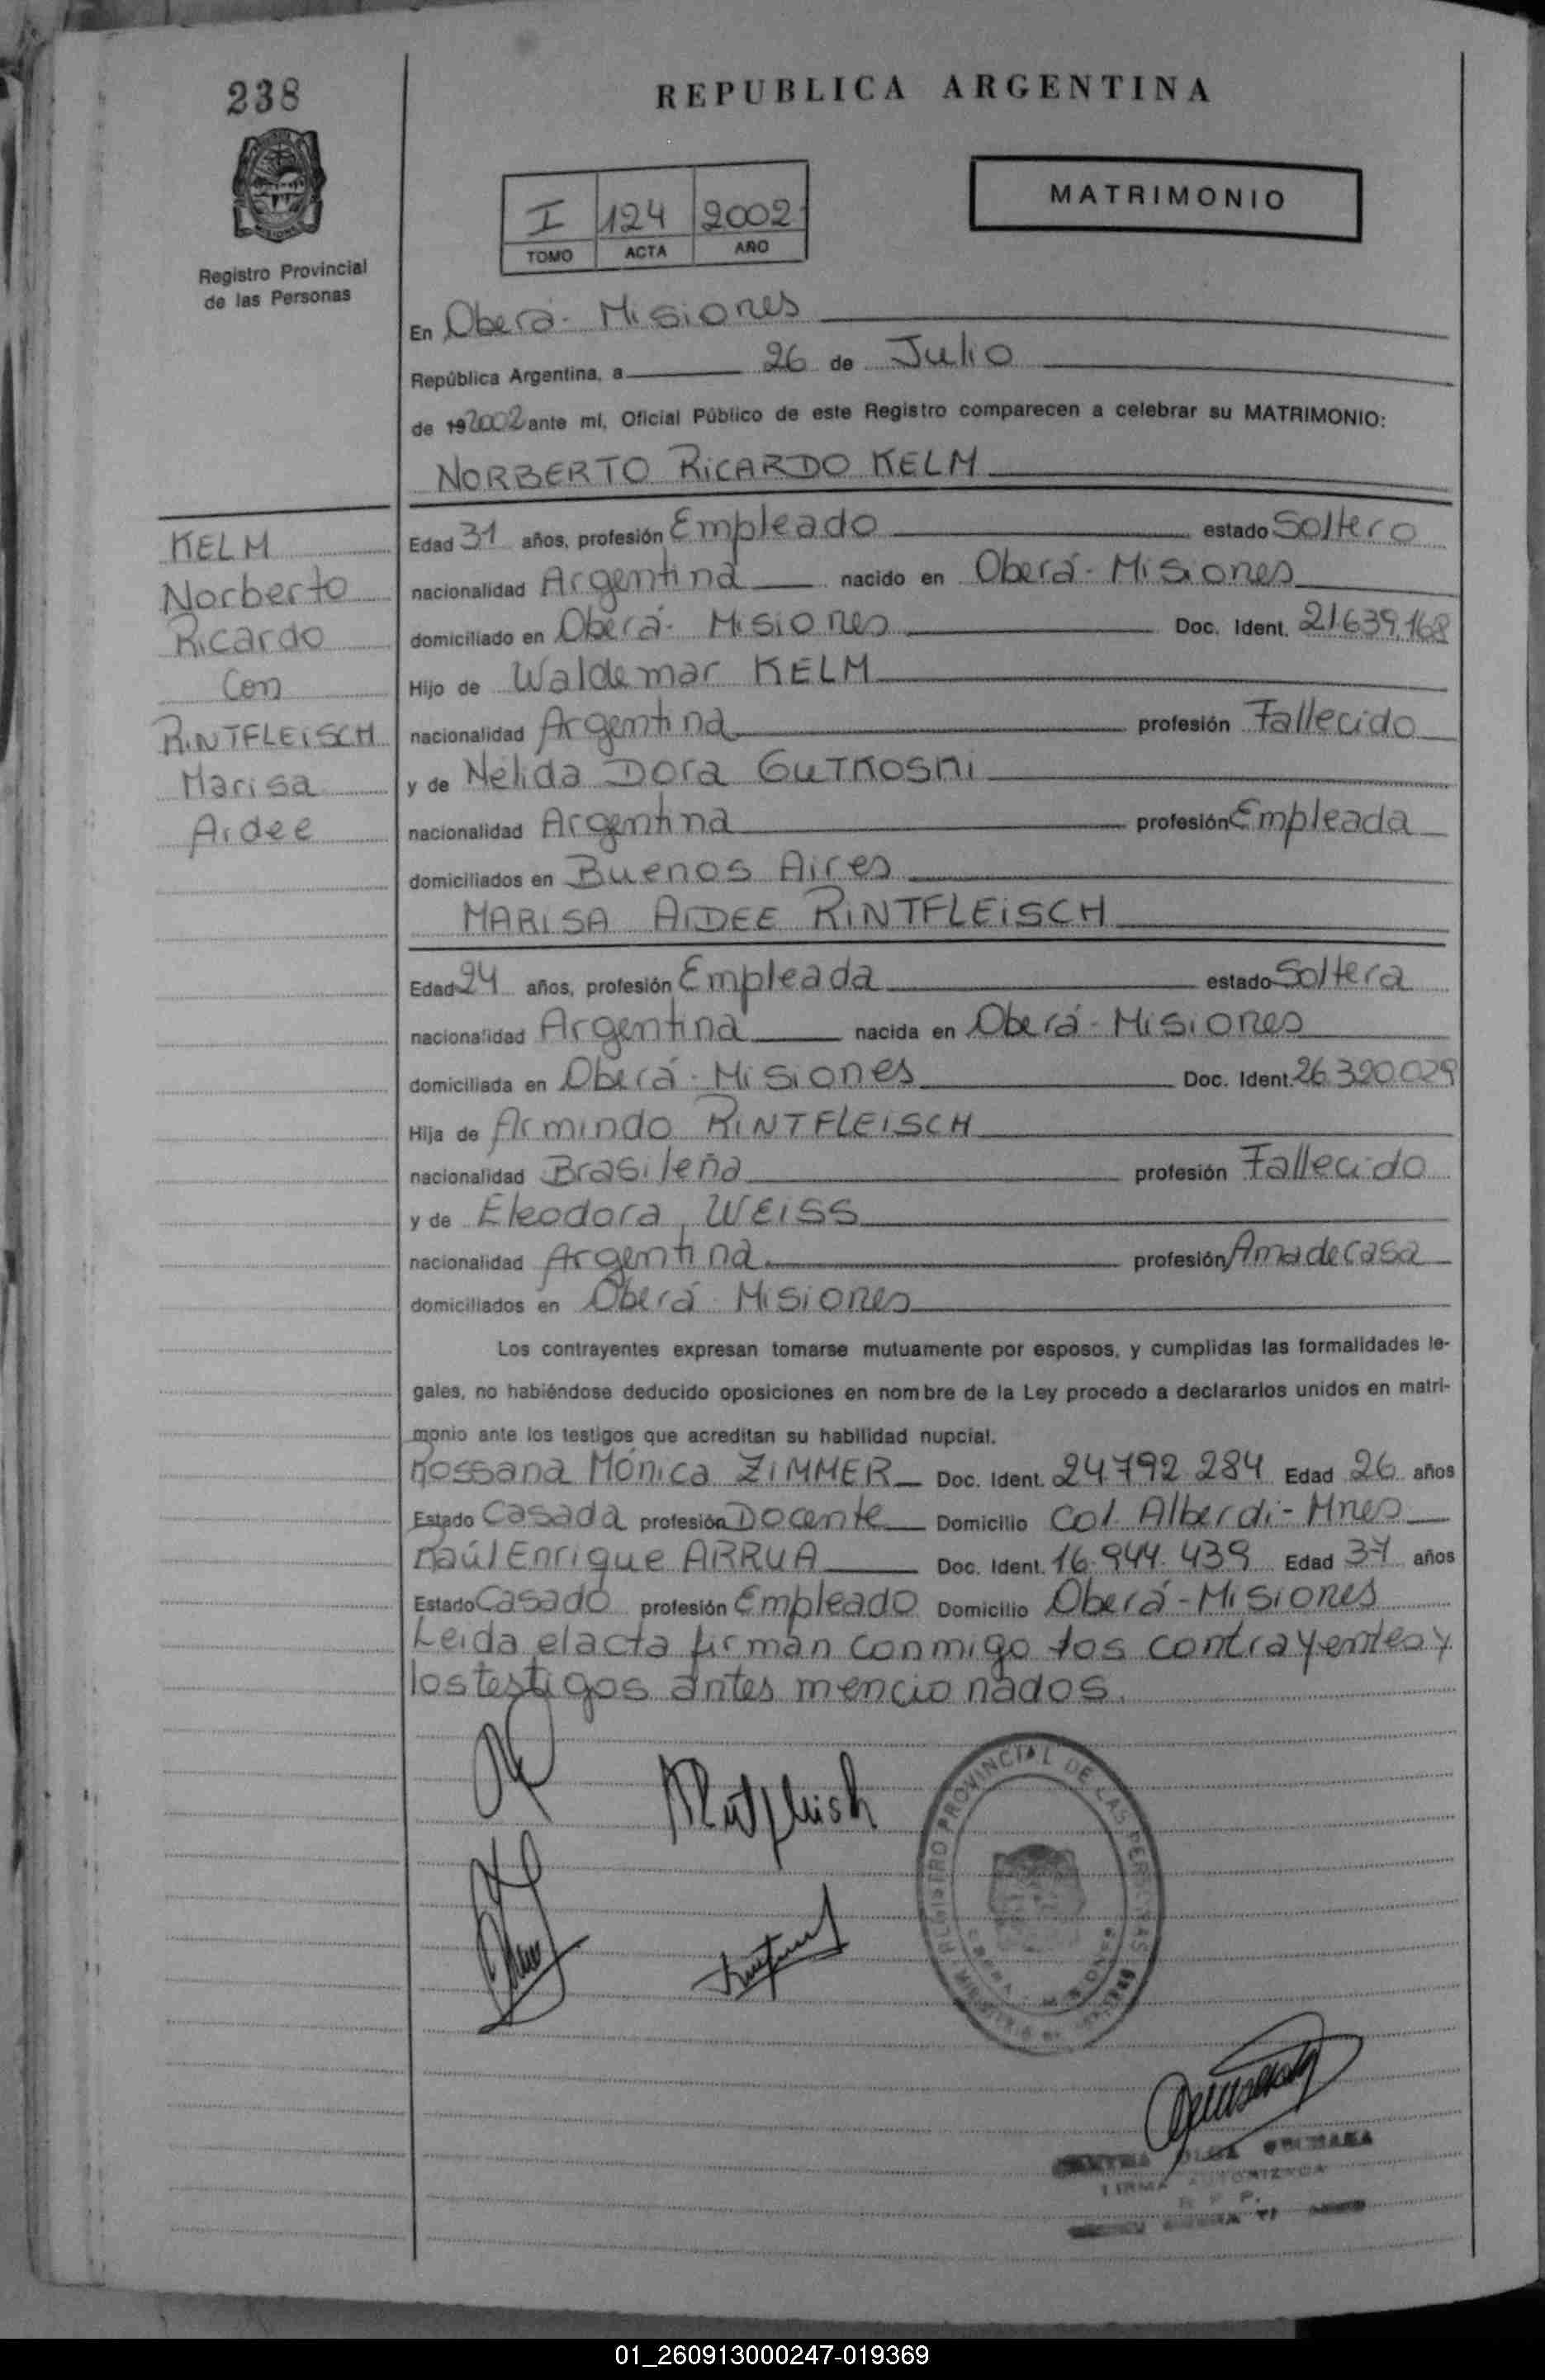 238
REPUBLICA ARGENTINA
MATRIMONIO
I 124 2002
TOMO ACTA AÑO
Registro Provincial
de las Personas
En Oberá - Misiones
República Argentina, a 26 de Julio
de 19 2002 ante mí, Oficial Público de este Registro comparecen a celebrar su MATRIMONIO:
NORBERTO RICARDO KELM
KELM
Norberto
Ricardo
Con
RINTFLEISCH
Marisa
Aidee
Edad 31 años, profesión Empleado estado Soltero
nacionalidad Argentina nacido en Oberá - Misiones
domiciliado en Oberá - Misiones Doc. Ident. 21.639.168
Hijo de Waldemar KELM
nacionalidad Argentina profesión Fallecido
y de Nélida Dora GUTKOSKI
nacionalidad Argentina profesión Empleada
domiciliados en Buenos Aires
MARISA AIDEE RINTFLEISCH
Edad 24 años, profesión Empleada estado Soltera
nacionalidad Argentina nacida en Oberá - Misiones
domiciliada en Oberá - Misiones Doc. Ident. 26.320.029
Hija de Armindo RINTFLEISCH
nacionalidad Brasileña profesión Fallecido
y de Eleodora WEISS
nacionalidad Argentina profesión Ama de casa
domiciliados en Oberá - Misiones
Los contrayentes expresan tomarse mutuamente por esposos, y cumplidas las formalidades le-
gales, no habiéndose deducido oposiciones en nombre de la Ley procedo a declararlos unidos en matri-
monio ante los testigos que acreditan su habilidad nupcial.
Rossana Mónica ZIMMER Doc. Ident. 24.792.284 Edad 26 años
Estado Casada profesión Docente Domicilio Col. Alberdi - Mnes
Raúl Enrique ARRUA Doc. Ident. 16.944.439 Edad 37 años
Estado Casado profesión Empleado Domicilio Oberá - Misiones
Leida el acta firman conmigo los contrayentes y
los testigos antes mencionados.
REGISTRO PROVINCIAL DE LAS PERSONAS
FIRMA AUTORIZADA
R. P. P.
01_260913000247-019369